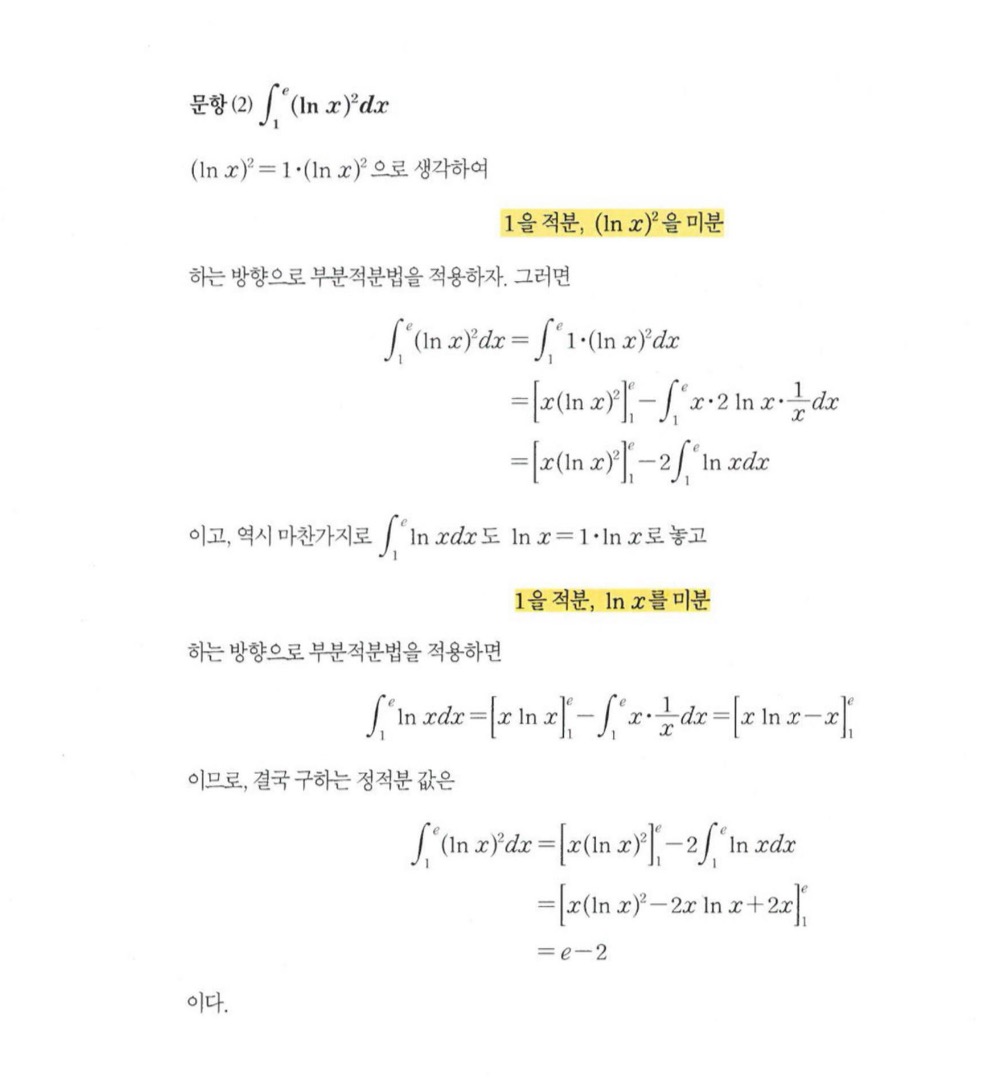 문항 (2) ∫₁ᵉ (ln x)² dx
(ln x)² = 1·(ln x)² 으로 생각하여
1을 적분, (ln x)² 을 미분
하는 방향으로 부분적분법을 적용하자. 그러면
∫₁ᵉ (ln x)² dx = ∫₁ᵉ 1·(ln x)² dx
= [x(ln x)²]₁ᵉ − ∫₁ᵉ x·2 ln x·(1/x) dx
= [x(ln x)²]₁ᵉ − 2∫₁ᵉ ln xdx
이고, 역시 마찬가지로 ∫₁ᵉ ln xdx 도 ln x = 1·ln x로 놓고
1을 적분, ln x를 미분
하는 방향으로 부분적분법을 적용하면
∫₁ᵉ ln xdx = [x ln x]₁ᵉ − ∫₁ᵉ x·(1/x) dx = [x ln x − x]₁ᵉ
이므로, 결국 구하는 정적분 값은
∫₁ᵉ (ln x)² dx = [x(ln x)²]₁ᵉ − 2∫₁ᵉ ln xdx
= [x(ln x)² − 2x ln x + 2x]₁ᵉ
= e − 2
이다.